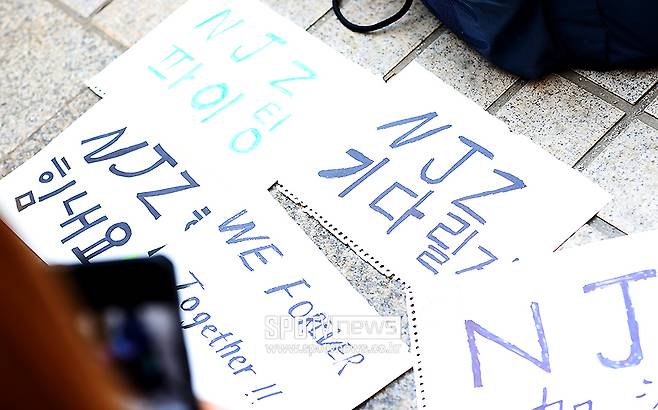 NJZ
파이팅
NJZ
기다릴게
NJZ
힘내요
WE
FOREVER
Together !!
NJ
SPOTVnews
www.spotvnews.co.kr